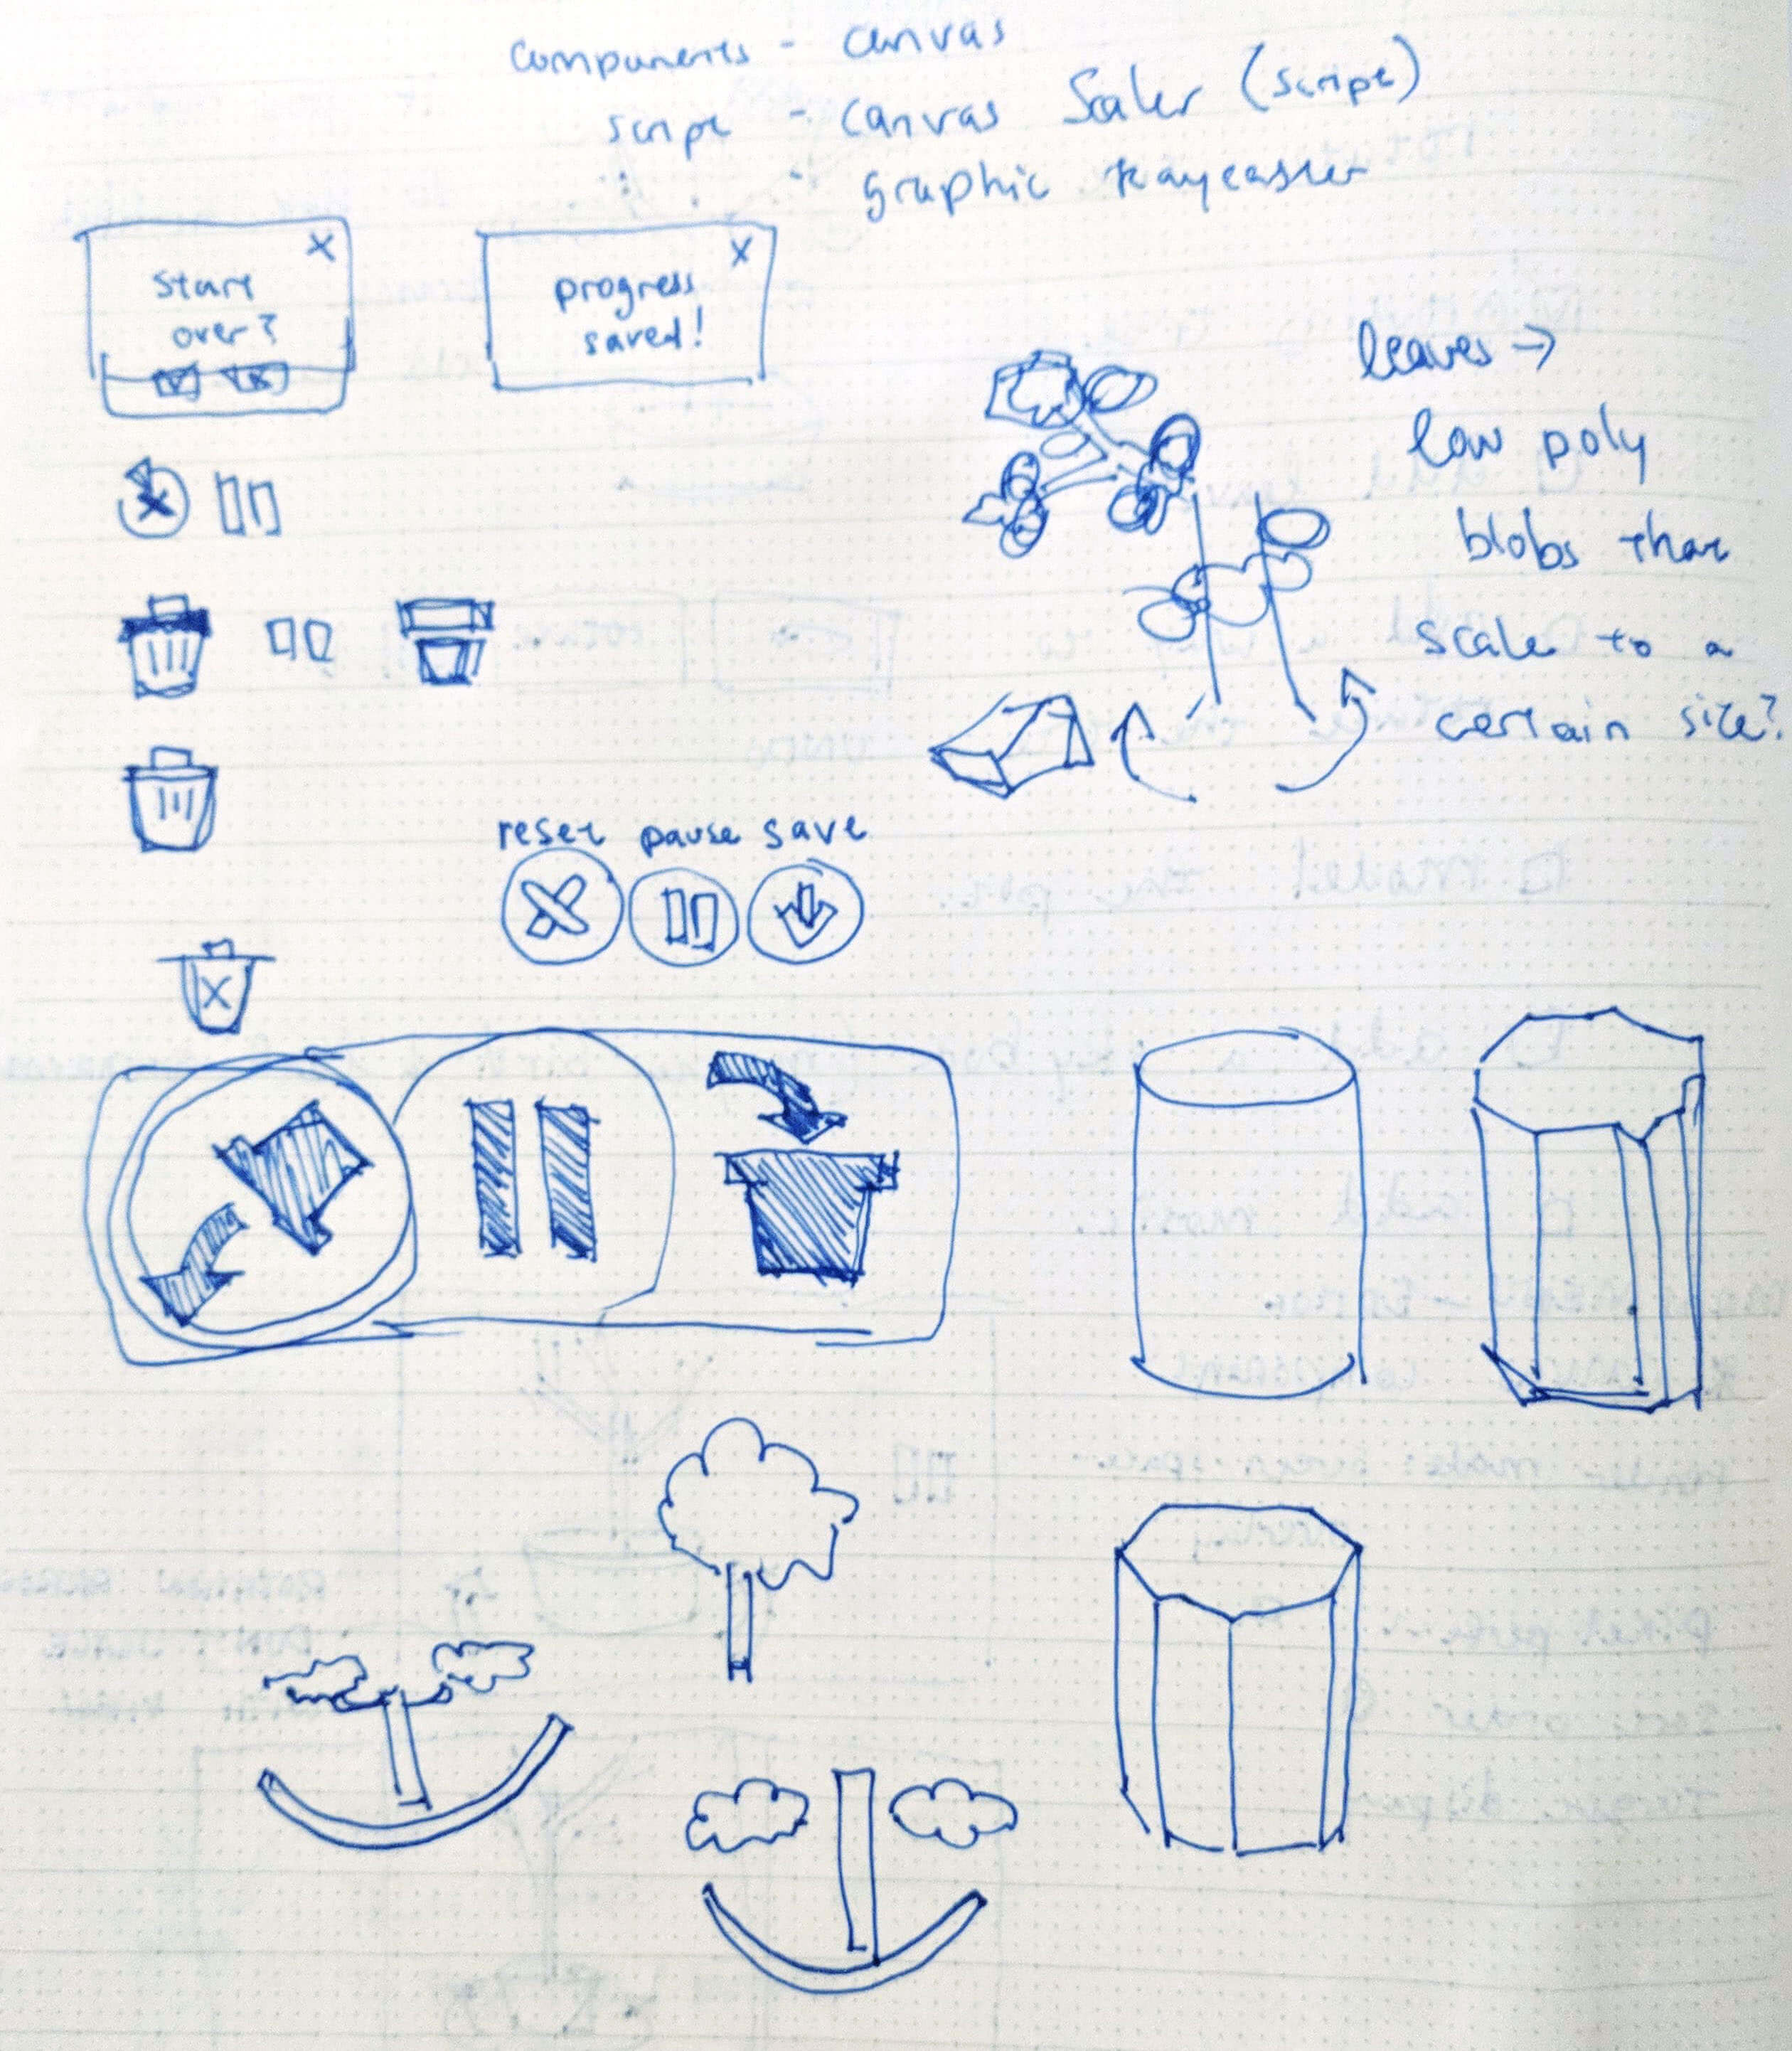 components - canvas
script - canvas Scaler (script)
- graphic raycaster
x
start
over?
x
progress
saved!
leaves →
low poly
blobs that
scale to a
certain size?
reset pause save